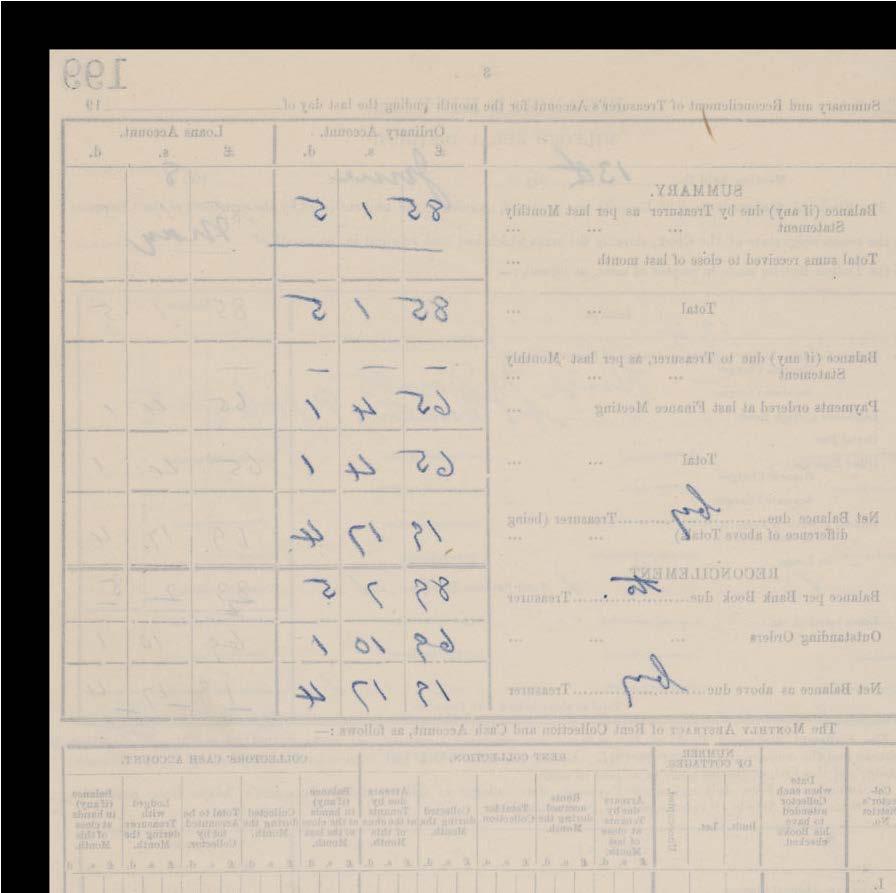 199
8
Summary and Reconcilement of Treasurer's Account for the month ending the last day of 19
Ordinary Account. Loans Account.
£ s. d. £ s. d.
SUMMARY.
Balance (if any) due by Treasurer as per last Monthly
Statement ... ... ... 85 1 5
Total sums received to close of last month ...
Total ... ... 85 1 5
Balance (if any) due to Treasurer, as per last Monthly
Statement ... ... ... — — —
Payments ordered at last Finance Meeting ... 65 4 1
Total ... ... 65 4 1
Net Balance due by Treasurer (being
difference of above Totals) ... ... 19 17 4
RECONCILEMENT
Balance per Bank Book due Treasurer 89 7 5
Outstanding Orders ... ... ... 69 10 1
Net Balance as above due by Treasurer 19 17 4
The Monthly Abstract of Rent Collection and Cash Account, as follows:—
NUMBER OF COTTAGES. RENT COLLECTION. COLLECTORS' CASH ACCOUNT.
Date when each Collector attended to have his Books checked.
Built.
Let.
Arrears due by Tenants at close of last Month.
Rents accrued during the Month.
Total for Collection
Collected during the Month.
Arrears due by Tenants at close of this Month.
Balance (if any) in hands at close of last Month.
Collected during the Month.
Total to be accounted for by Collector.
Lodged with Treasurer during the Month.
Balance (if any) in hands at close of this Month.
£ s. d. £ s. d. £ s. d. £ s. d. £ s. d. £ s. d. £ s. d. £ s. d. £ s. d. £ s. d.
1.